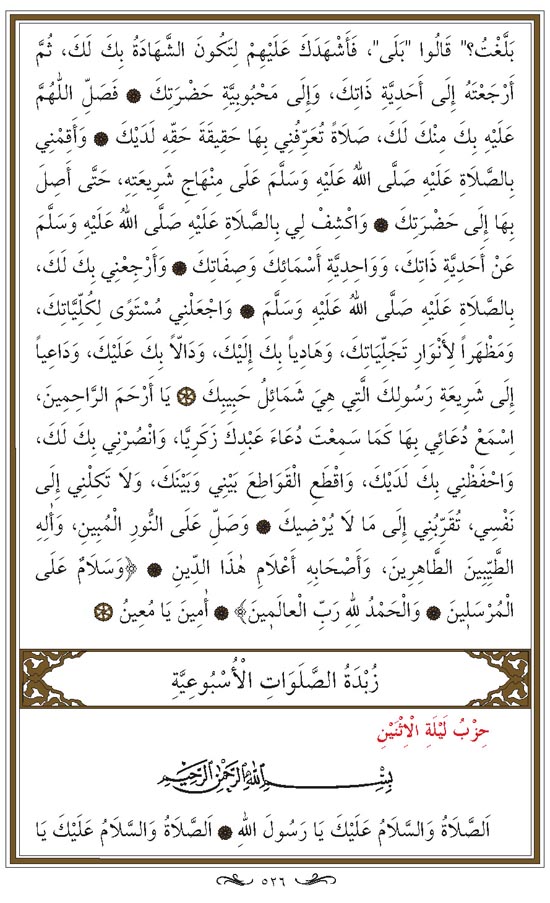 بَلَّغْتُ؟" قَالُوا "بَلَى"، فَأَشْهَدَكَ عَلَيْهِمْ لِتَكُونَ الشَّهَادَةُ بِكَ لَكَ، ثُمَّ
أَرْجَعْتَهُ إِلَى أَحَدِيَّةِ ذَاتِكَ، وَإِلَى مَحْبُوبِيَّةِ حَضْرَتِكَ ۞ فَصَلِّ اللّٰهُمَّ
عَلَيْهِ بِكَ مِنْكَ لَكَ، صَلَاةً تُعَرِّفُنِي بِهَا حَقِيقَةَ حَقِّهِ لَدَيْكَ ۞ وَأَقِمْنِي
بِالصَّلَاةِ عَلَيْهِ صَلَّى اللهُ عَلَيْهِ وَسَلَّمَ عَلَى مِنْهَاجِ شَرِيعَتِهِ، حَتَّى أَصِلَ
بِهَا إِلَى حَضْرَتِكَ ۞ وَاكْشِفْ لِي بِالصَّلَاةِ عَلَيْهِ صَلَّى اللهُ عَلَيْهِ وَسَلَّمَ
عَنْ أَحَدِيَّةِ ذَاتِكَ، وَوَاحِدِيَّةِ أَسْمَائِكَ وَصِفَاتِكَ ۞ وَأَرْجِعْنِي بِكَ لَكَ،
بِالصَّلَاةِ عَلَيْهِ صَلَّى اللهُ عَلَيْهِ وَسَلَّمَ ۞ وَاجْعَلْنِي مُسْتَوًى لِكُلِّيَّاتِكَ،
وَمَظْهَراً لِأَنْوَارِ تَجَلِّيَاتِكَ، وَهَادِياً بِكَ إِلَيْكَ، وَدَالّاً بِكَ عَلَيْكَ، وَدَاعِياً
إِلَى شَرِيعَةِ رَسُولِكَ الَّتِي هِيَ شَمَائِلُ حَبِيبِكَ ۞ يَا أَرْحَمَ الرَّاحِمِينَ،
اِسْمَعْ دُعَائِي بِهَا كَمَا سَمِعْتَ دُعَاءَ عَبْدِكَ زَكَرِيَّا، وَانْصُرْنِي بِكَ لَكَ،
وَاحْفَظْنِي بِكَ لَدَيْكَ، وَاقْطَعِ الْقَوَاطِعَ بَيْنِي وَبَيْنَكَ، وَلَا تَكِلْنِي إِلَى
نَفْسِي، تُقَرِّبُنِي إِلَى مَا لَا يُرْضِيكَ ۞ وَصَلِّ عَلَى النُّورِ الْمُبِينِ، وَاٰلِهِ
الطَّيِّبِينَ الطَّاهِرِينَ، وَأَصْحَابِهِ أَعْلَامِ هٰذَا الدِّينِ ۞ ﴿وَسَلَامٌ عَلَى
الْمُرْسَلِينَ ۞ وَالْحَمْدُ لِلهِ رَبِّ الْعَالَمِينَ﴾ ۞ اٰمِينَ يَا مُعِينُ ۞
زُبْدَةُ الصَّلَوَاتِ الْأُسْبُوعِيَّةِ
حِزْبُ لَيْلَةِ الْاِثْنَيْنِ
بِسْمِ اللهِ الرَّحْمٰنِ الرَّحِيمِ
اَلصَّلَاةُ وَالسَّلَامُ عَلَيْكَ يَا رَسُولَ اللهِ ۞ اَلصَّلَاةُ وَالسَّلَامُ عَلَيْكَ يَا
٥٢٦